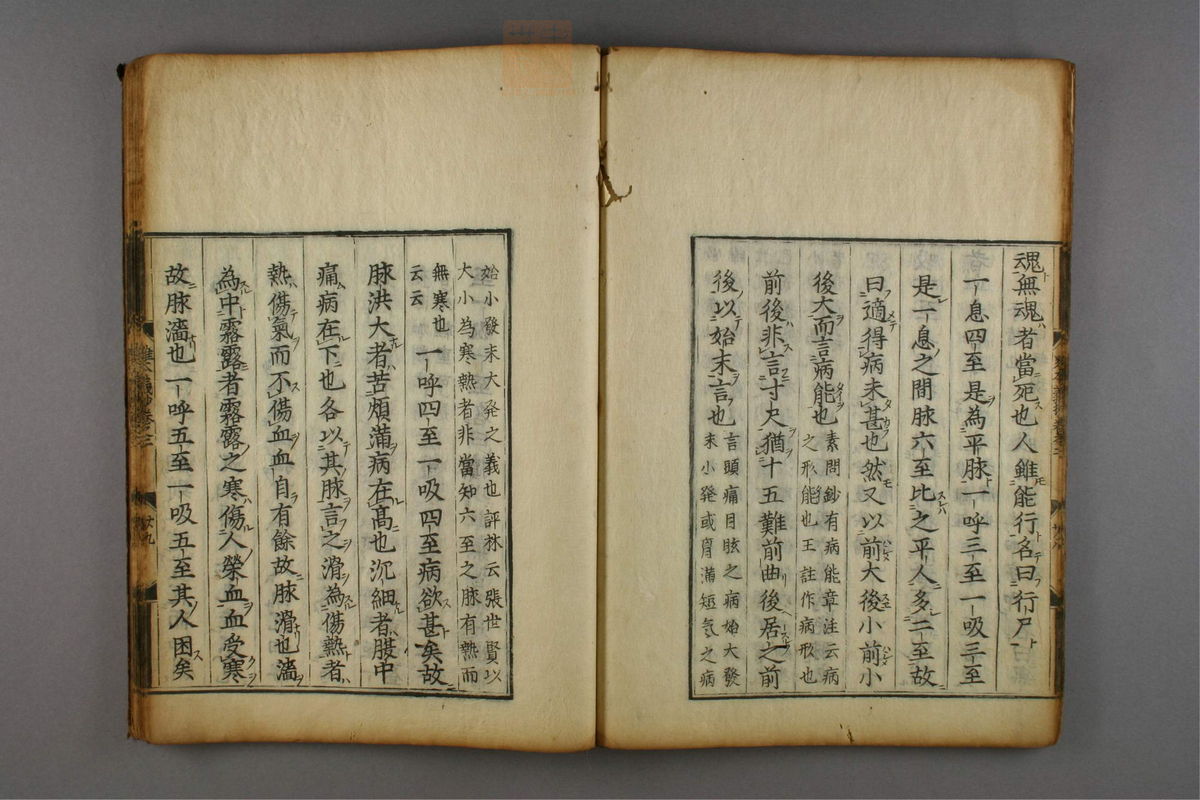 魂無魂者當死也人雖能行名曰行尸
一息四至是為平脉一呼三至一吸三至
是一息之間脉六至比之平人多二至故
曰適得病未甚也然又以前大後小前小
後大而言病能也
素問鈔有病能章注云病
之形能也王註作病形也
前後非言寸尺猶十五難前曲後居之前
後以始末言也
言頭痛目眩之病始大發
末小発或胷滿短気之病
始小發末大発之義也評林云張世賢以
大小為寒熱者非當知六至之脉有熱而
無寒也
云云
一呼四至一吸四至病欲甚矣故
脉洪大者苦煩滿病在髙也沉細者腹中
痛病在下也各以其脉言之滑為傷熱者
熱傷氣而不傷血血自有餘故脉滑也濇
為中霧露者霧露之寒傷人榮血血受寒
故脉濇也一呼五至一吸五至其人困矣
廿九